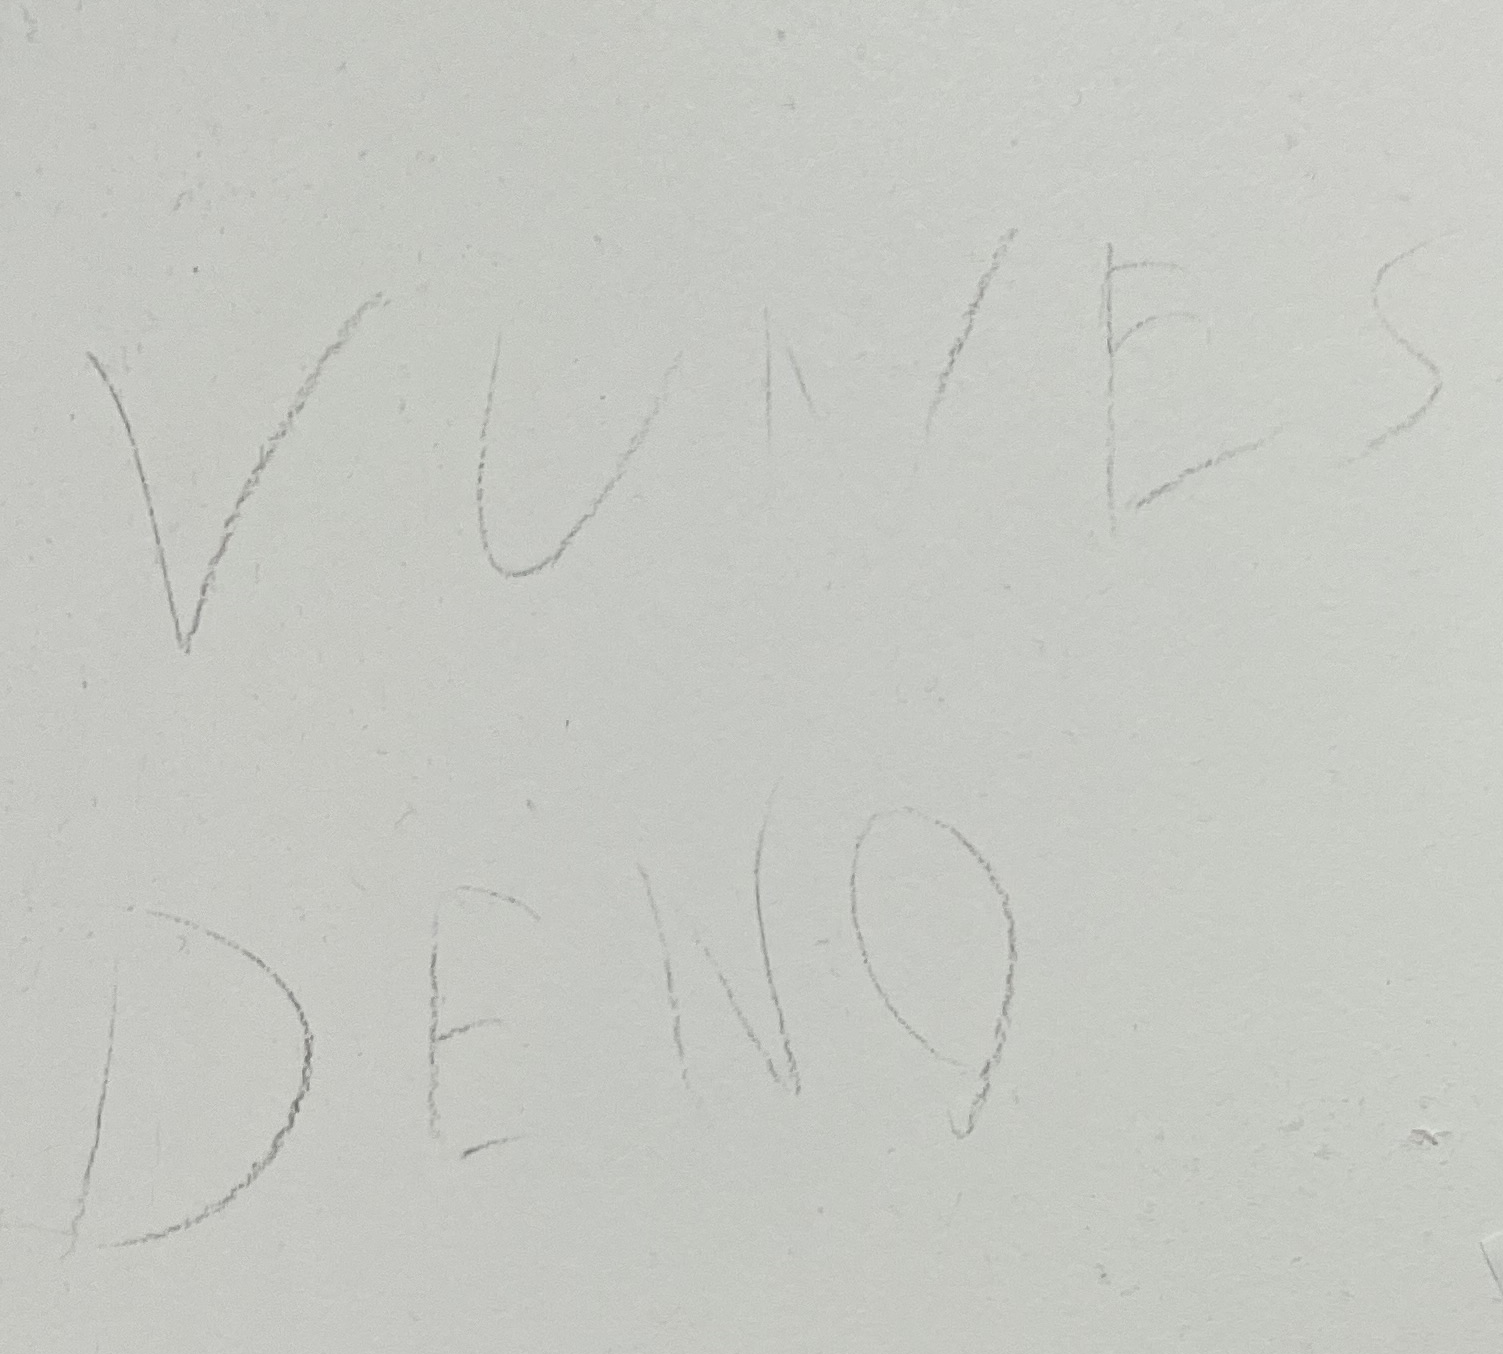 VUNES
DENO